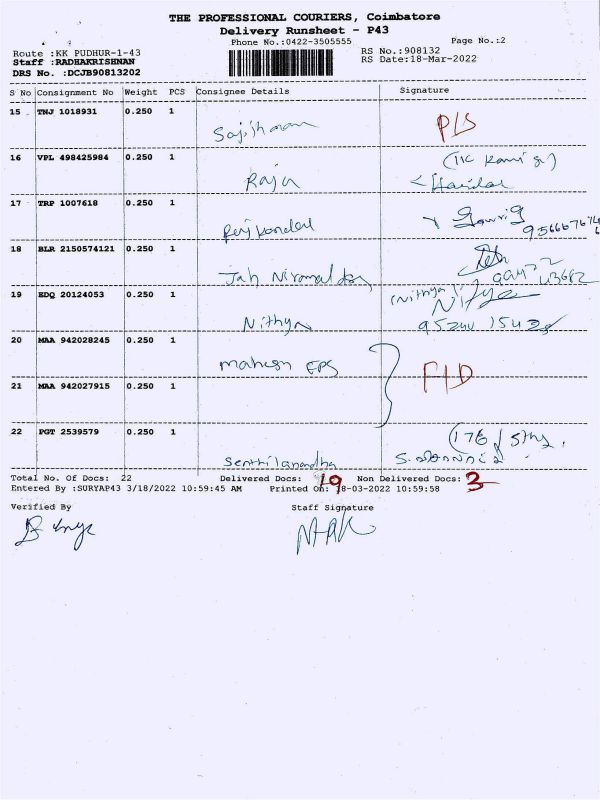 THE PROFESSIONAL COURIERS, Coimbatore
Delivery Runsheet - P43
Phone No.:0422-3505555
Page No.:2
Route :KK PUDHUR-1-43
RS No.:908132
Staff :RADHAKRISHNAN
RS Date:18-Mar-2022
DRS No. :DCJB90813202
S No Consignment No Weight PCS Consignee Details Signature
15 TNJ 1018931 0.250 1
P/S
16 VPL 498425984 0.250 1
Raja
17 TRP 1007618 0.250 1
18 BLR 2150574121 0.250 1
19 EDQ 20124053 0.250 1
(Nithya)
Nithya
20 MAA 942028245 0.250 1
Mahesh EPS
F/D
21 MAA 942027915 0.250 1
22 PGT 2539579 0.250 1
Total No. Of Docs: 22 Delivered Docs: 19 Non Delivered Docs: 3
Entered By :SURYAP43 3/18/2022 10:59:45 AM Printed On: 18-03-2022 10:59:58
Verified By Staff Signature